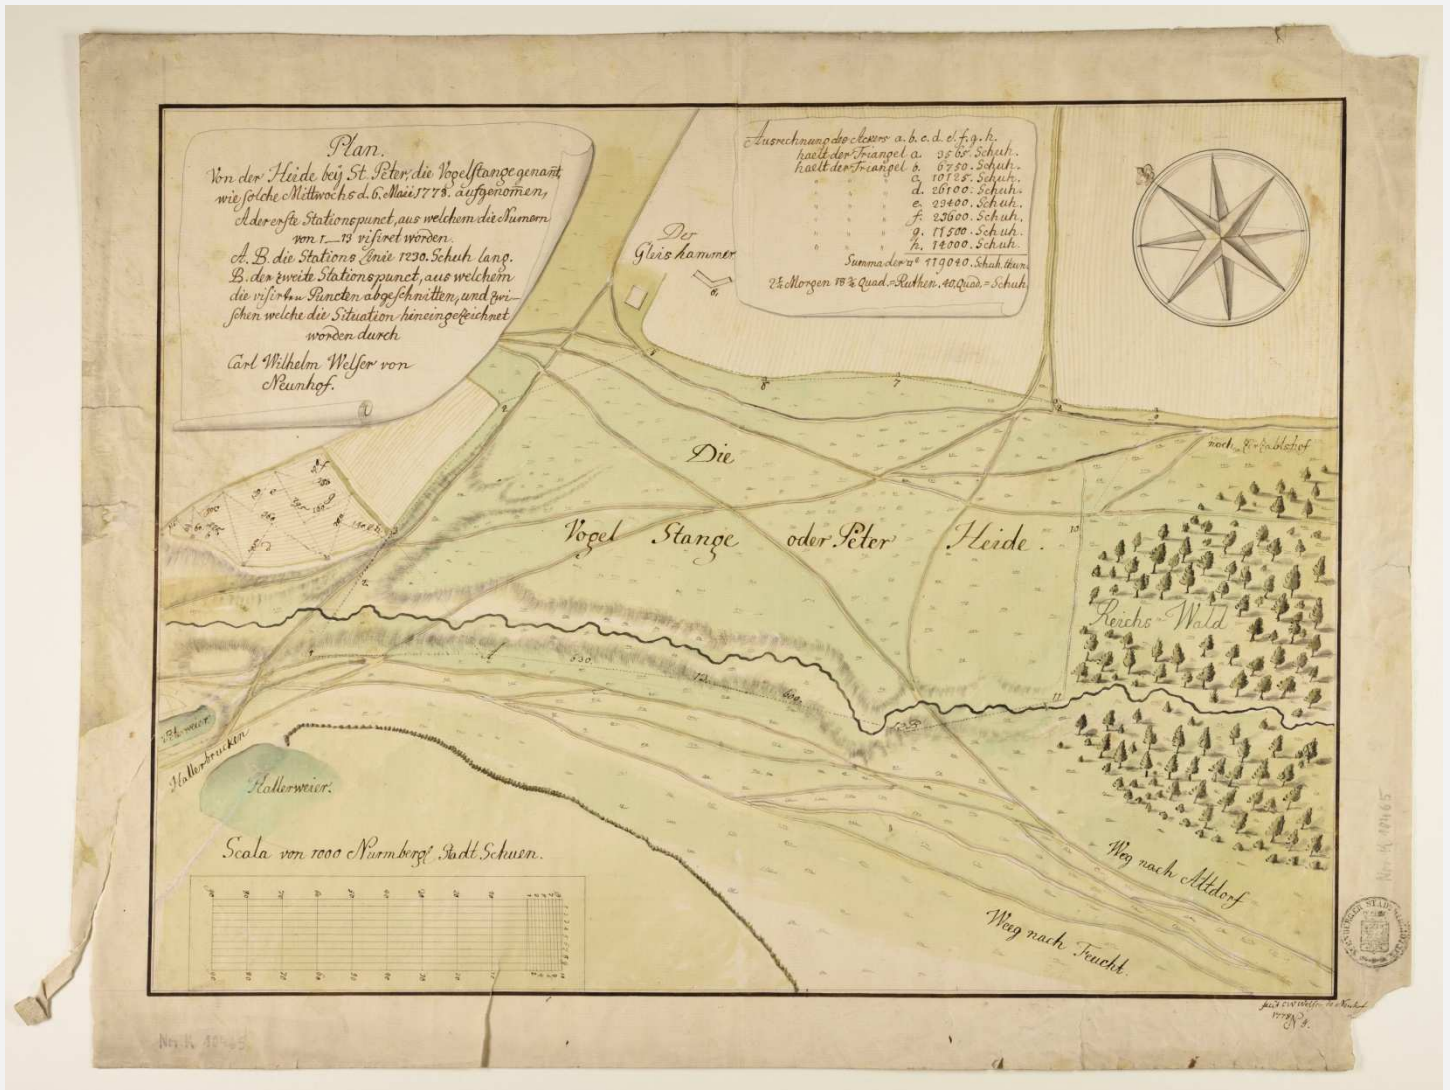 Plan.
Von der Heide beÿ St. Peter, die Vogelstange genant,
wie solche Mittwochs d. 6. Maii 1778. aufgenomen,
A der erste Stationspunct, aus welchem die Numern
von 1_13 visiret worden.
A. B. die Stations Linie 1230. Schuh lang.
B. der zweite Stationspunct, aus welchem
die visirten Puncten abgeschnitten, und zwi-
schen welche die Situation hineingezeichnet
worden durch
Carl Wilhelm Welser von
Neunhof.
Ausrechnung des Ackers a. b. c. d. e. f. g. h.
haelt der Triangel a. 3565. Schuh.
haelt der Triangel b. 6750. Schuh.
c. 10125. Schuh.
d. 26100. Schuh.
e. 23400. Schuh.
f. 23600. Schuh.
g. 11500. Schuh.
h. 14000. Schuh.
Summa der 119040. Schuh. thun
2½ Morgen Quad. Ruthen. 40. Quad. Schuh
Der
Gleishammer
Die
Vogel Stange oder Peter Heide.
nach Zerzablshof
Reichs-Wald
630.
12.
600.
11
10
7
8
Hallerbrucken
Hallerweier.
Scala von 1000 Nurmbergl. Stadt Schuen.
Weg nach Altdorf
Weeg nach Feucht.
Nor. K. 10465
Nor. K. 10465